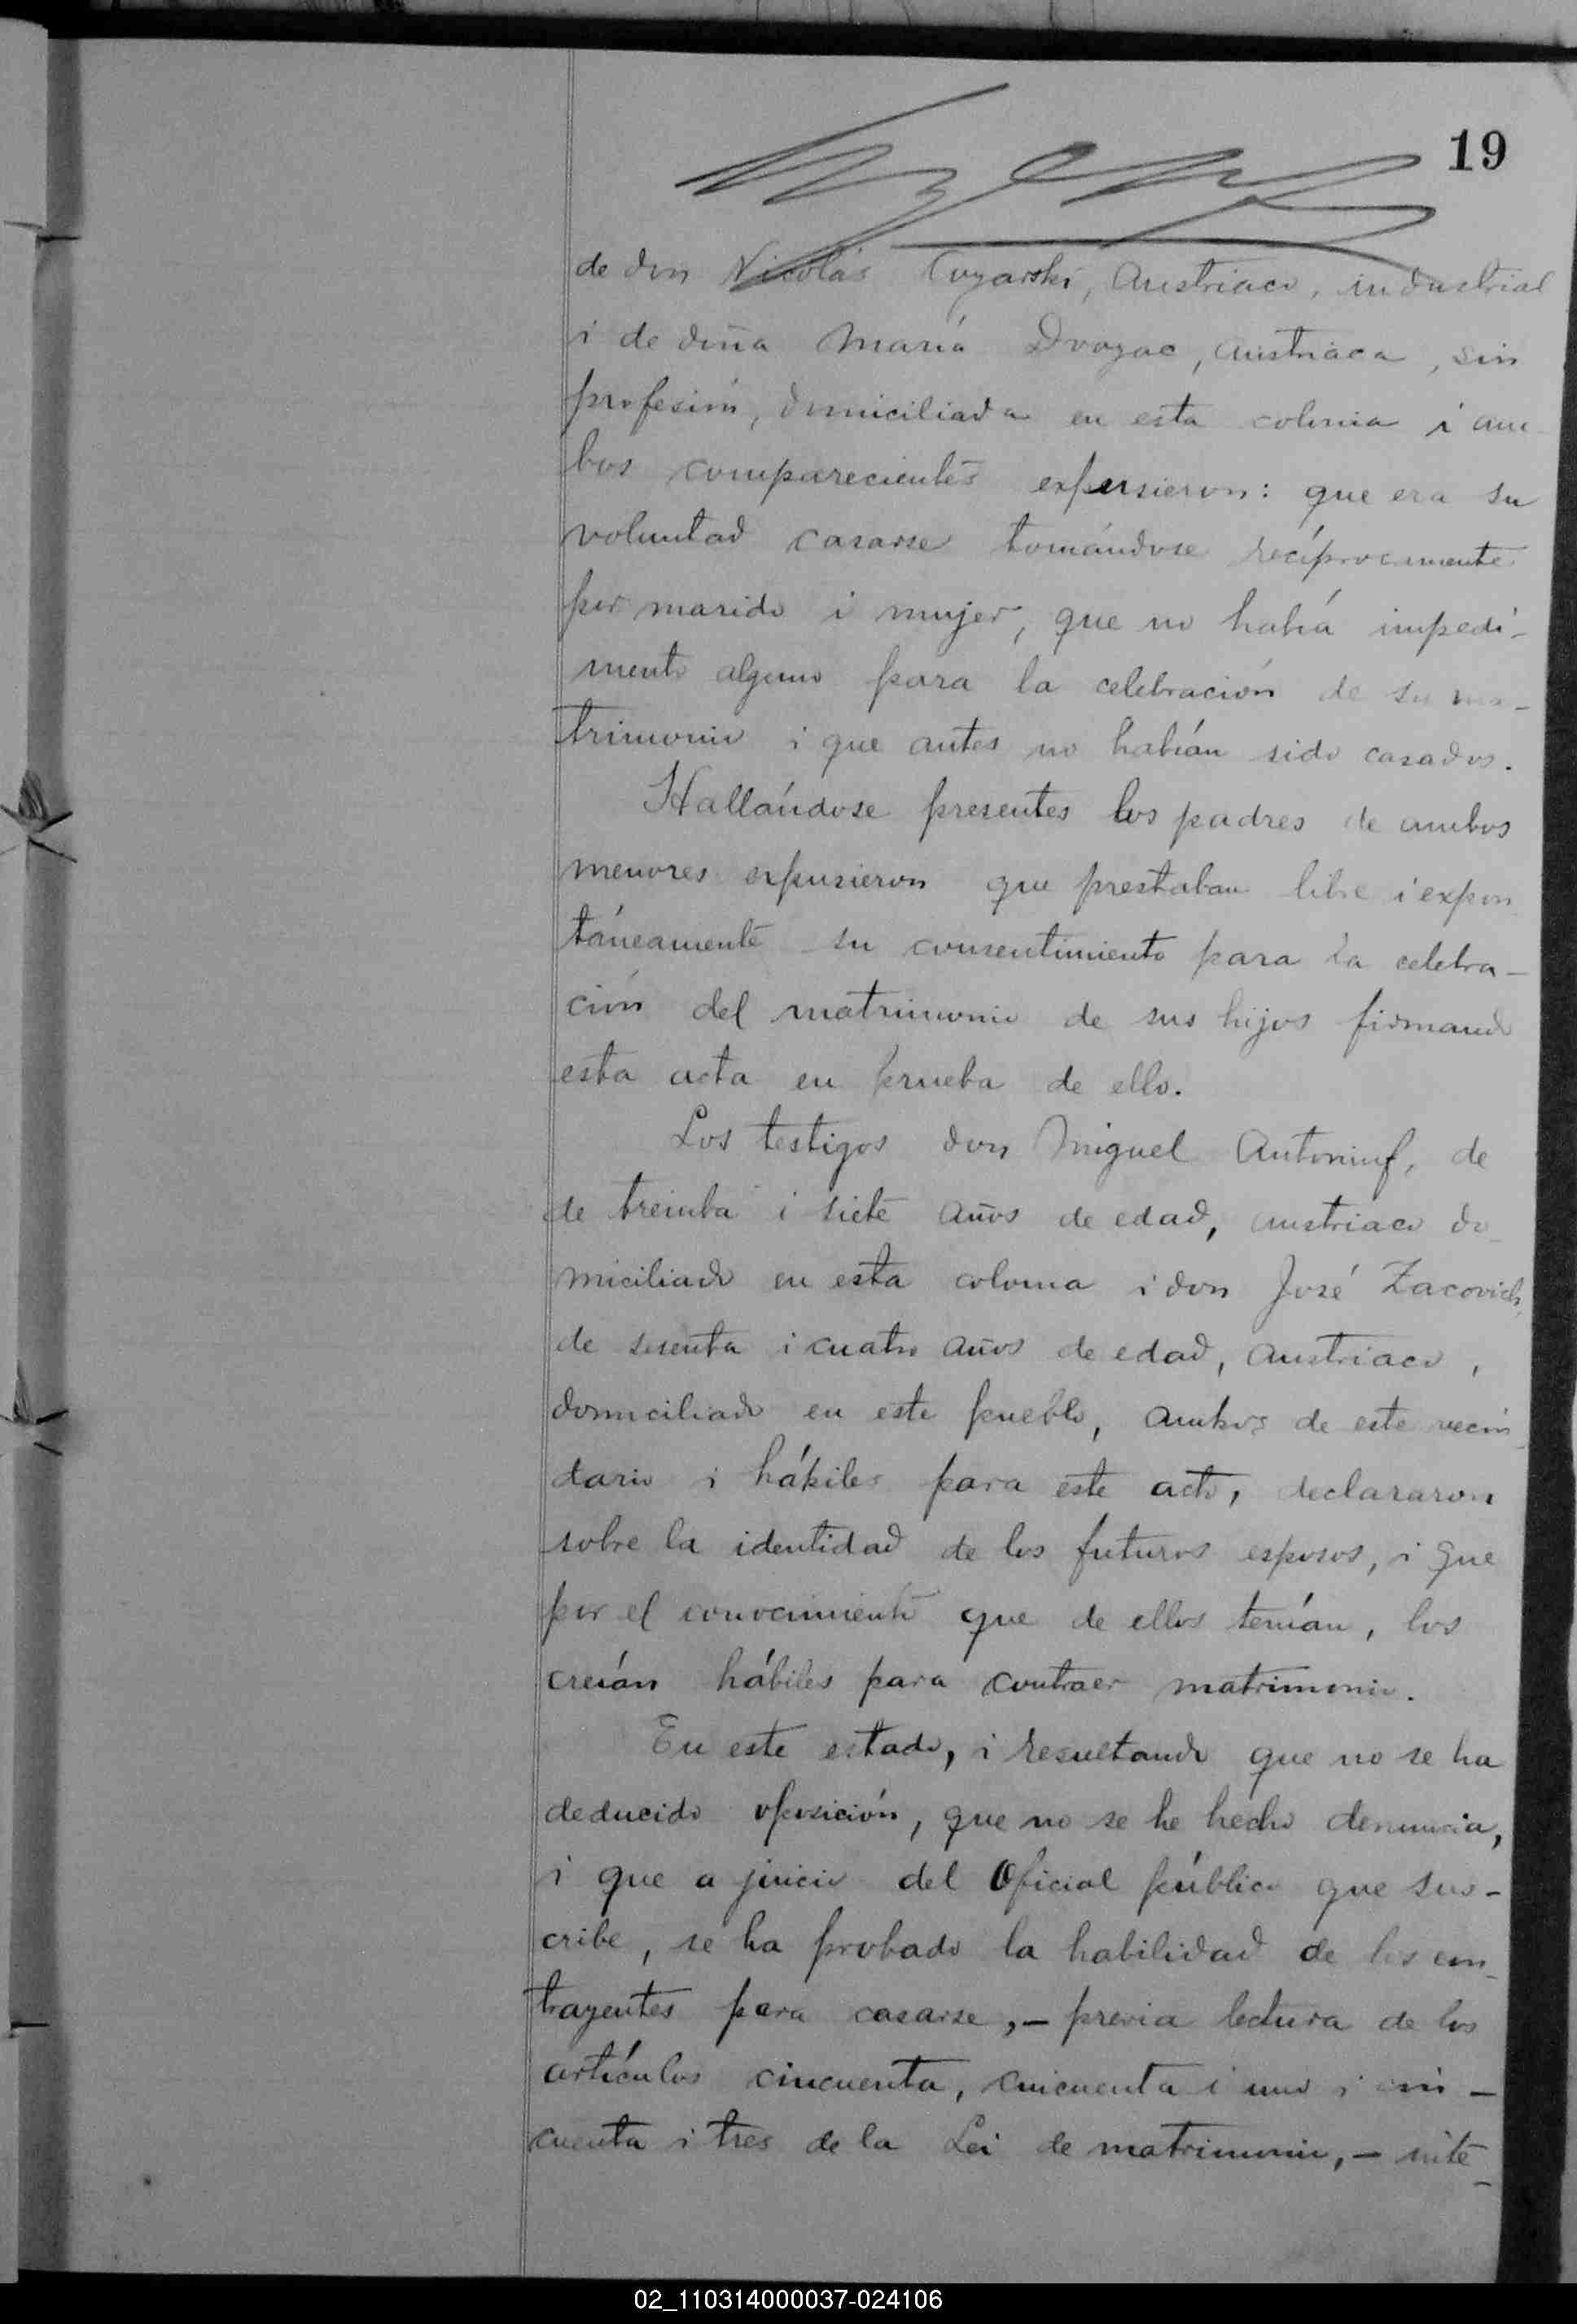 19
de don Nicolás Cuzarski, Austriaco, industrial
i de doña María Dvozac, austriaca, sin
profesión, domiciliada en esta colonia i am
bos comparecientes expusieron: que era su
voluntad casarse tomándose recíprocamente
por marido i mujer, que no había impedi-
mento alguno para la celebración de su ma-
trimonio i que antes no habían sido casados.
Hallándose presentes los padres de ambos
menores expusieron que prestaban libre i expon
táneamente su consentimiento para la celebra-
ción del matrimonio de sus hijos firmando
esta acta en prueba de ello.
Los testigos don Miguel Antoniuf, de
de treinta i siete años de edad, austriaco do
miciliado en esta colonia i don José Zacovich,
de sesenta i cuatro años de edad, austriaco,
domiciliado en este pueblo, ambos de este vecin
dario i hábiles para este acto, declararon
sobre la identidad de los futuros esposos, i que
por el conocimiento que de ellos tenían, los
creían hábiles para contraer matrimonio.
En este estado, i resultando que no se ha
deducido oposición, que no se he hecho denuncia,
i que a juicio del Oficial público que sus-
cribe, se ha probado la habilidad de los con-
trayentes para casarse,- previa lectura de los
artículos cincuenta, cincuenta i uno i cin-
cuenta i tres de la Lei de matrimonio,- inte-
02_110314000037-024106